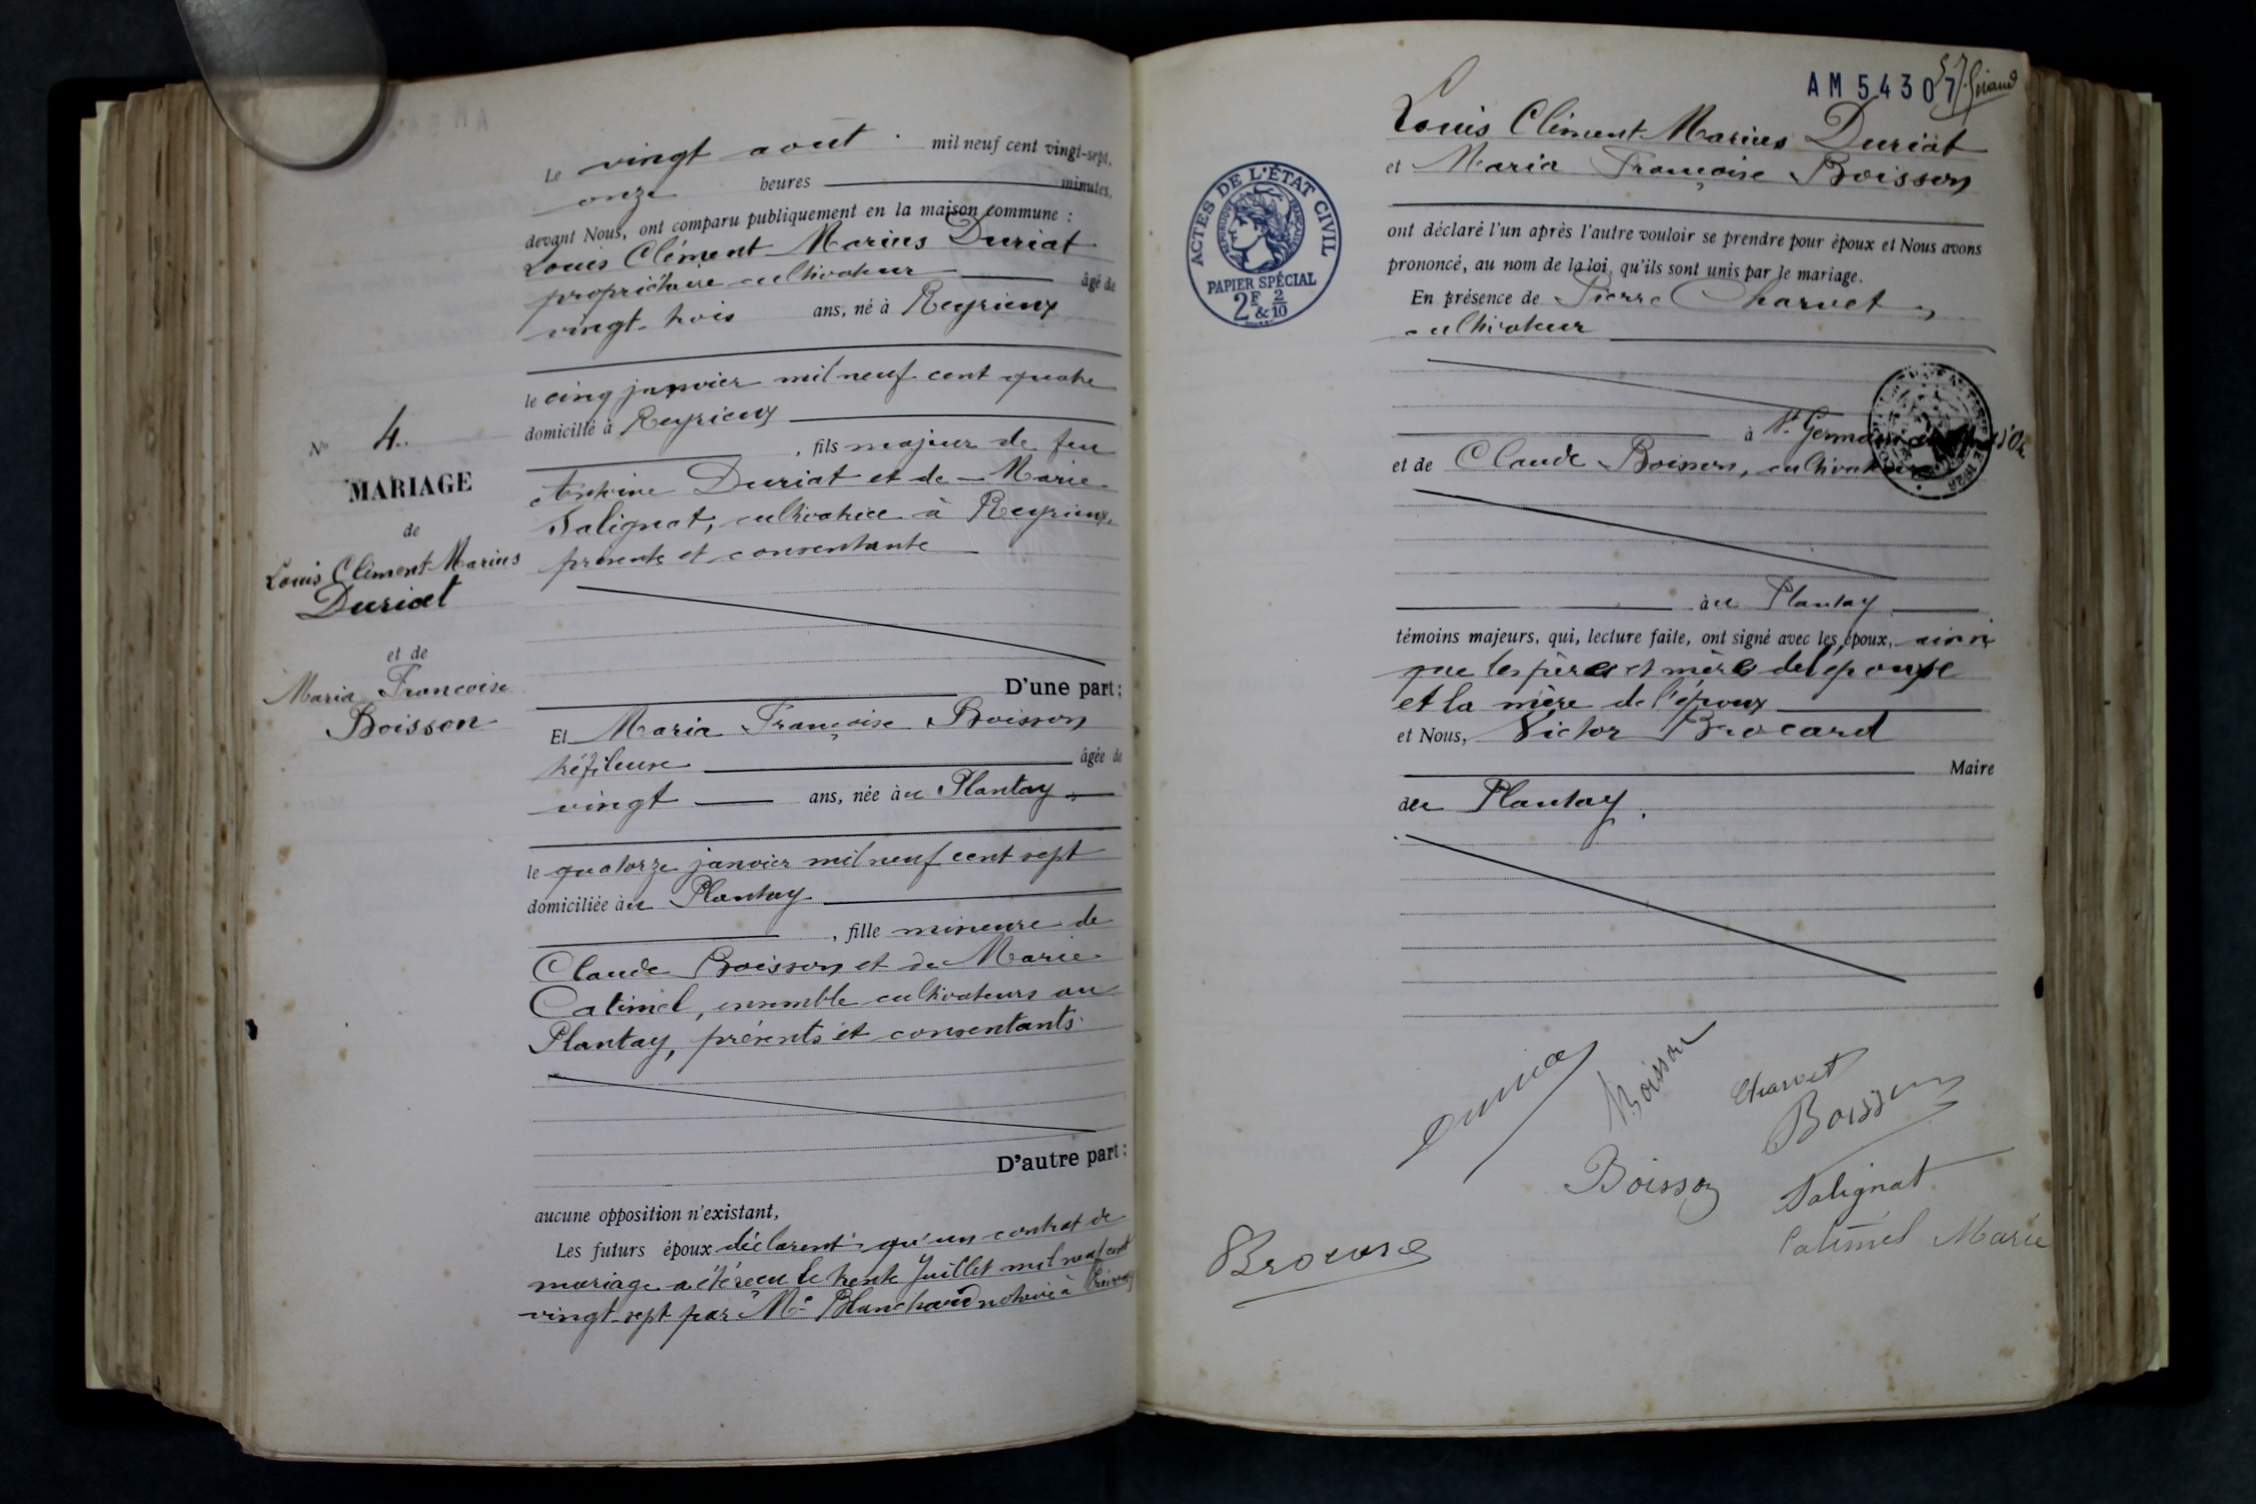 Le vingt aout mil neuf cent vingt-sept,
onze heures minutes,
devant Nous, ont comparu publiquement en la maison commune :
Louis Clément Marius Duriat
propriétaire cultivateur âgé de
vingt-trois ans, né à Reyrieux
le cinq janvier mil neuf cent quatre
domicilié à Reyrieux
, fils majeur de feu
Antoine Duriat et de Marie
Salignat, cultivatrice à Reyrieux,
présente et consentante
D'une part ;
N° 4.
MARIAGE
de
Louis Clément Marius
Duriat
et de
Maria Francoise
Boisson
Et Maria Françoise Boisson
tréfileuse âgée de
vingt ans, née au Plantay
le quatorze janvier mil neuf cent sept
domiciliée au Plantay
, fille mineure de
Claude Boisson et de Marie
Catimel, ensemble cultivateurs au
Plantay, présents et consentants
D'autre part :
aucune opposition n'existant,
Les futurs époux déclarent qu'un contrat de
mariage a été reçu le trente Juillet mil neuf cent
vingt-sept par Me Blanchard notaire à
AM 54307
Louis Clément Marius Duriat
et Maria Françoise Boisson
ACTES DE L'ÉTAT CIVIL
RÉPUBLIQUE FRANÇAISE
PAPIER SPÉCIAL
2F & 2/10
ont déclaré l'un après l'autre vouloir se prendre pour époux et Nous avons
prononcé, au nom de la loi, qu'ils sont unis par le mariage.
En présence de Pierre Charvet,
cultivateur
à St Germain d'Or
et de Claude Boisson, cultivateur
au Plantay
témoins majeurs, qui, lecture faite, ont signé avec les époux, ainsi
que les pères et mères de l'épouse
et la mère de l'époux
et Nous, Victor Brocard
Maire
du Plantay.
Boisson
Charvet
Boisson
Boisson
Salignat
Catimel Marie
Brocard